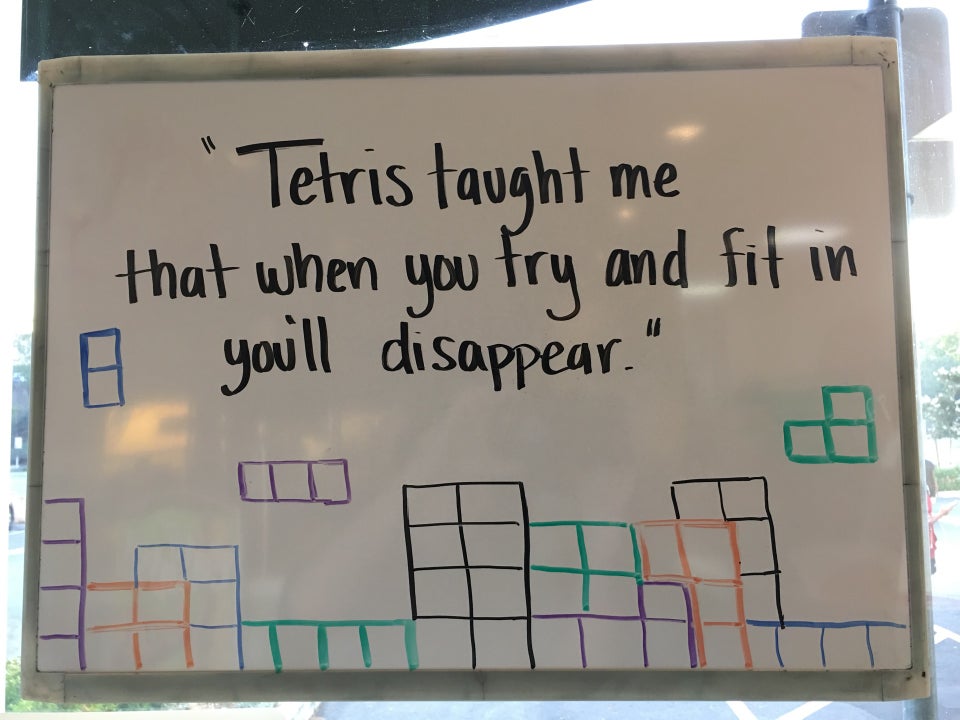 "Tetris taught me
that when you try and fit in
you'll disappear."